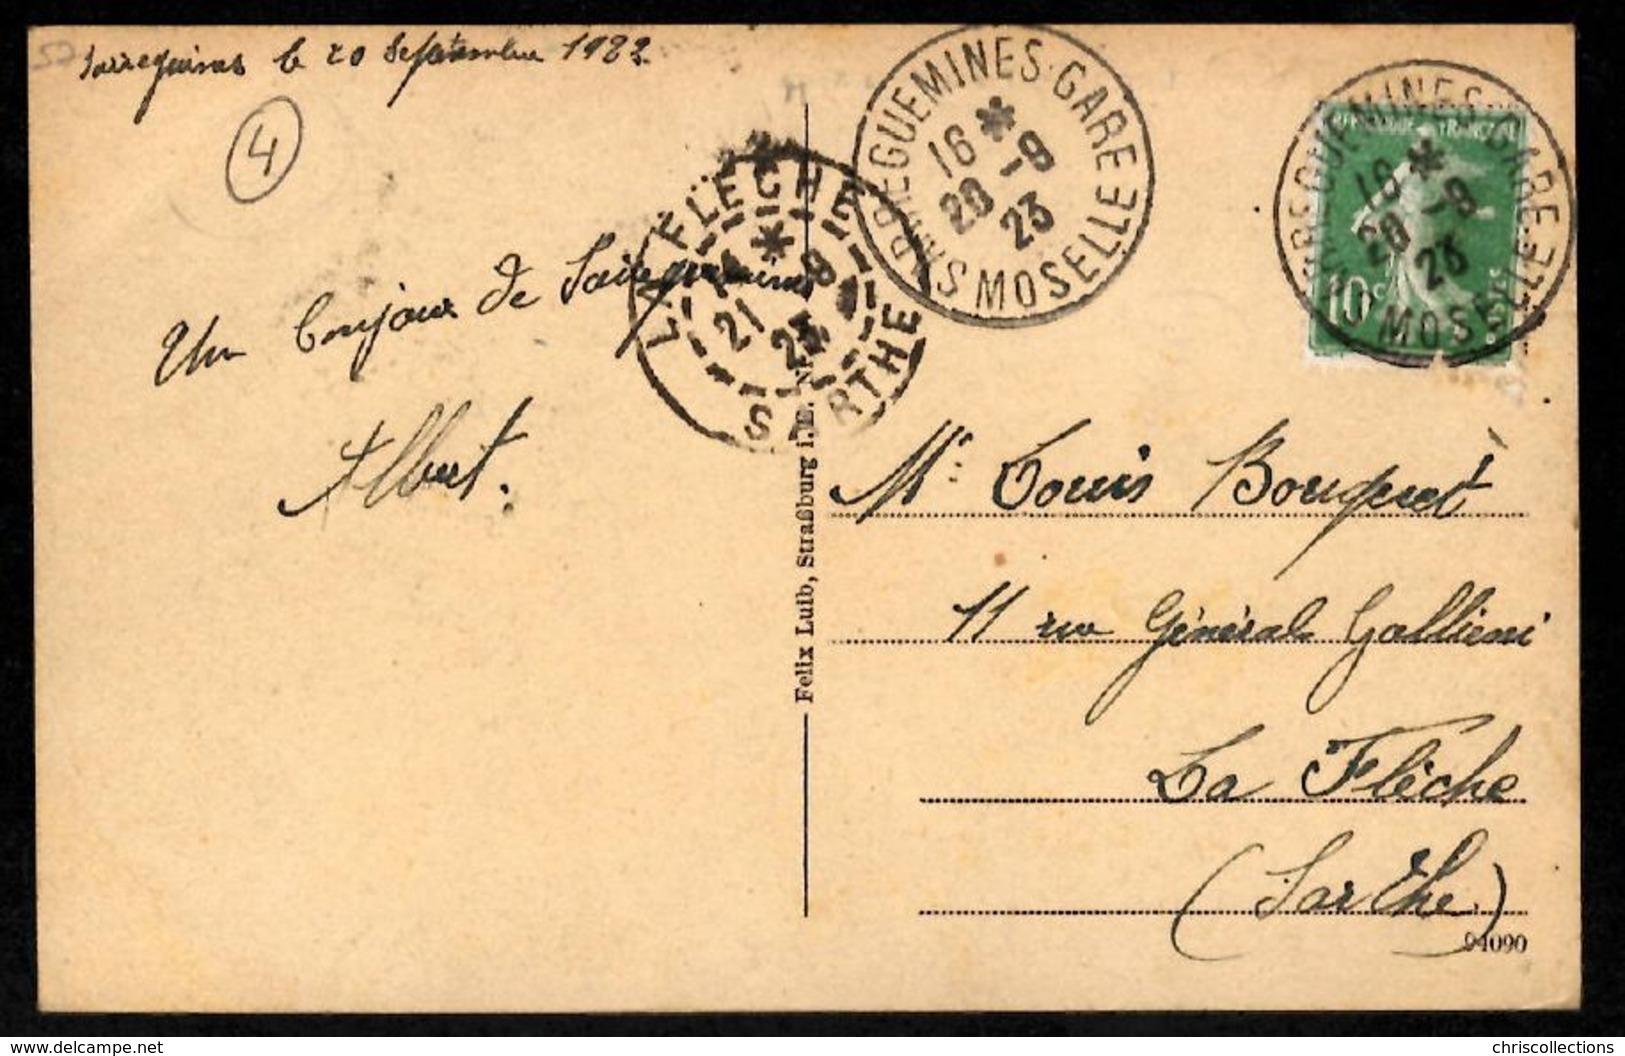 Sarreguemines le 20 Septembre 1923
4
Un bonjour de Sarreguemines
Albert.
SARREGUEMINES-GARE
16 * -9
20 23
MOSELLE
LA FLECHE
* 9
21 23
SARTHE
SARREGUEMINES-GARE
16 * -9
20 23
MOSELLE
10c
Felix Luib, Straßburg i. E.
Mr Louis Bouquet
11 rue Général Gallieni
La Flèche
(Sarthe)
94090
chriscollections